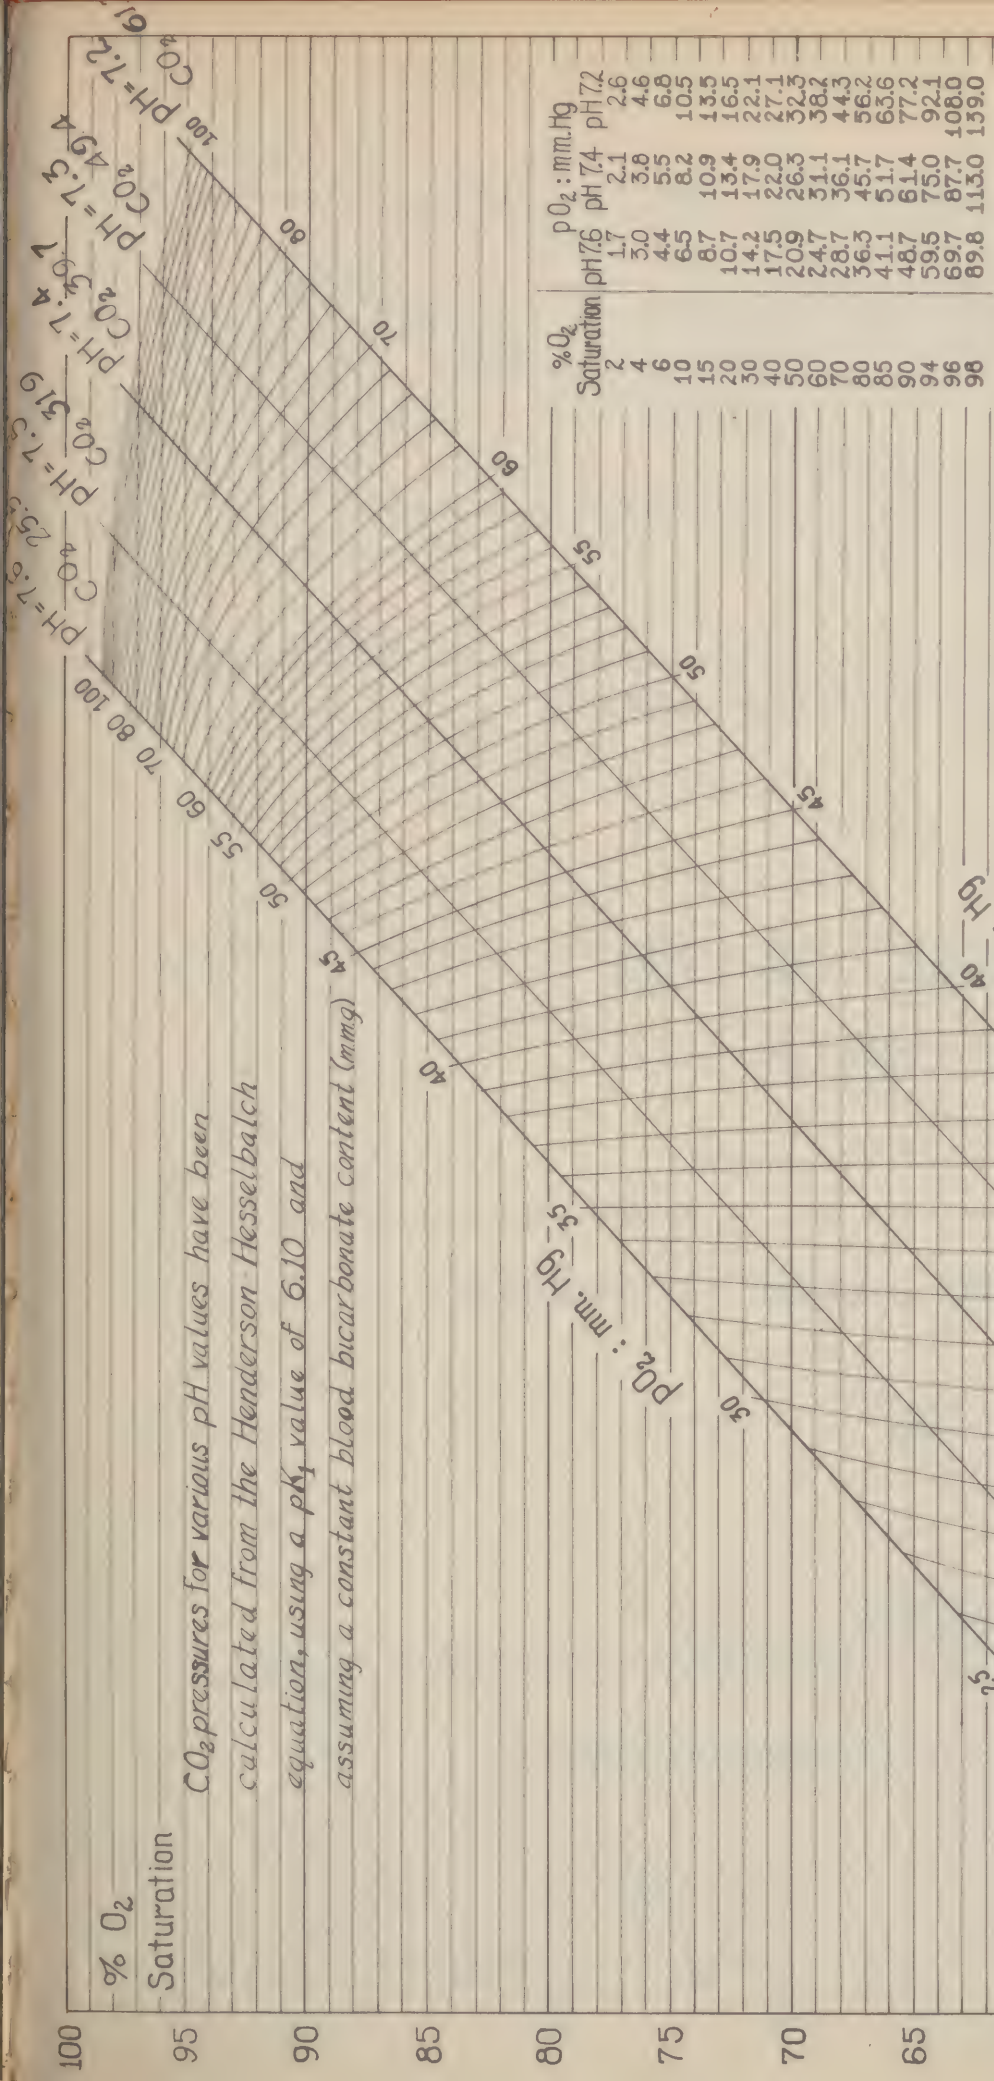 % O₂
Saturation
100
95
90
85
80
75
70
65
CO₂ pressures for various pH values have been
calculated from the Henderson-Hesselbalch
equation, using a pK₁ value of 6.10 and
assuming a constant blood bicarbonate content (mmg)
pH=7.6 CO₂
pH=7.5 CO₂ 31.9
pH=7.4 CO₂ 39.7
pH=7.3 CO₂ 49.4
pH=7.2 CO₂
100
80
70
60
55
50
45
40
35
30
25
pO₂ : mm. Hg
100
80
70
60
55
50
45
40
Hg
% O₂ pO₂ : mm.Hg
Saturation pH 7.6 pH 7.4 pH 7.2
2 1.7 2.1 2.6
4 3.0 3.8 4.6
6 4.4 5.5 6.8
10 6.5 8.2 10.5
15 8.7 10.9 13.5
20 10.7 13.4 16.5
30 14.2 17.9 22.1
40 17.5 22.0 27.1
50 20.9 26.3 32.3
60 24.7 31.1 38.2
70 28.7 36.1 44.3
80 36.3 45.7 56.2
85 41.1 51.7 63.6
90 48.7 61.4 77.2
94 59.5 75.0 92.1
96 69.7 87.7 108.0
98 89.8 113.0 139.0